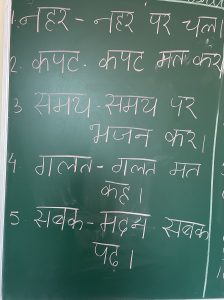 1. नहर - नहर पर चल।
2. कपट - कपट मत कर
3 समय - समय पर
भजन कर।
4 गलत - गलत मत
कह।
5 सबक - मदन सबक
पढ़।